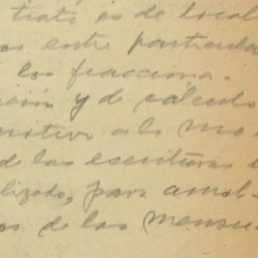 trata és de local
os entre particula
los fracciona.
ción y de cálculo
motivo a la mo
de las escrituras
lizado, para amol-
os de las mensu